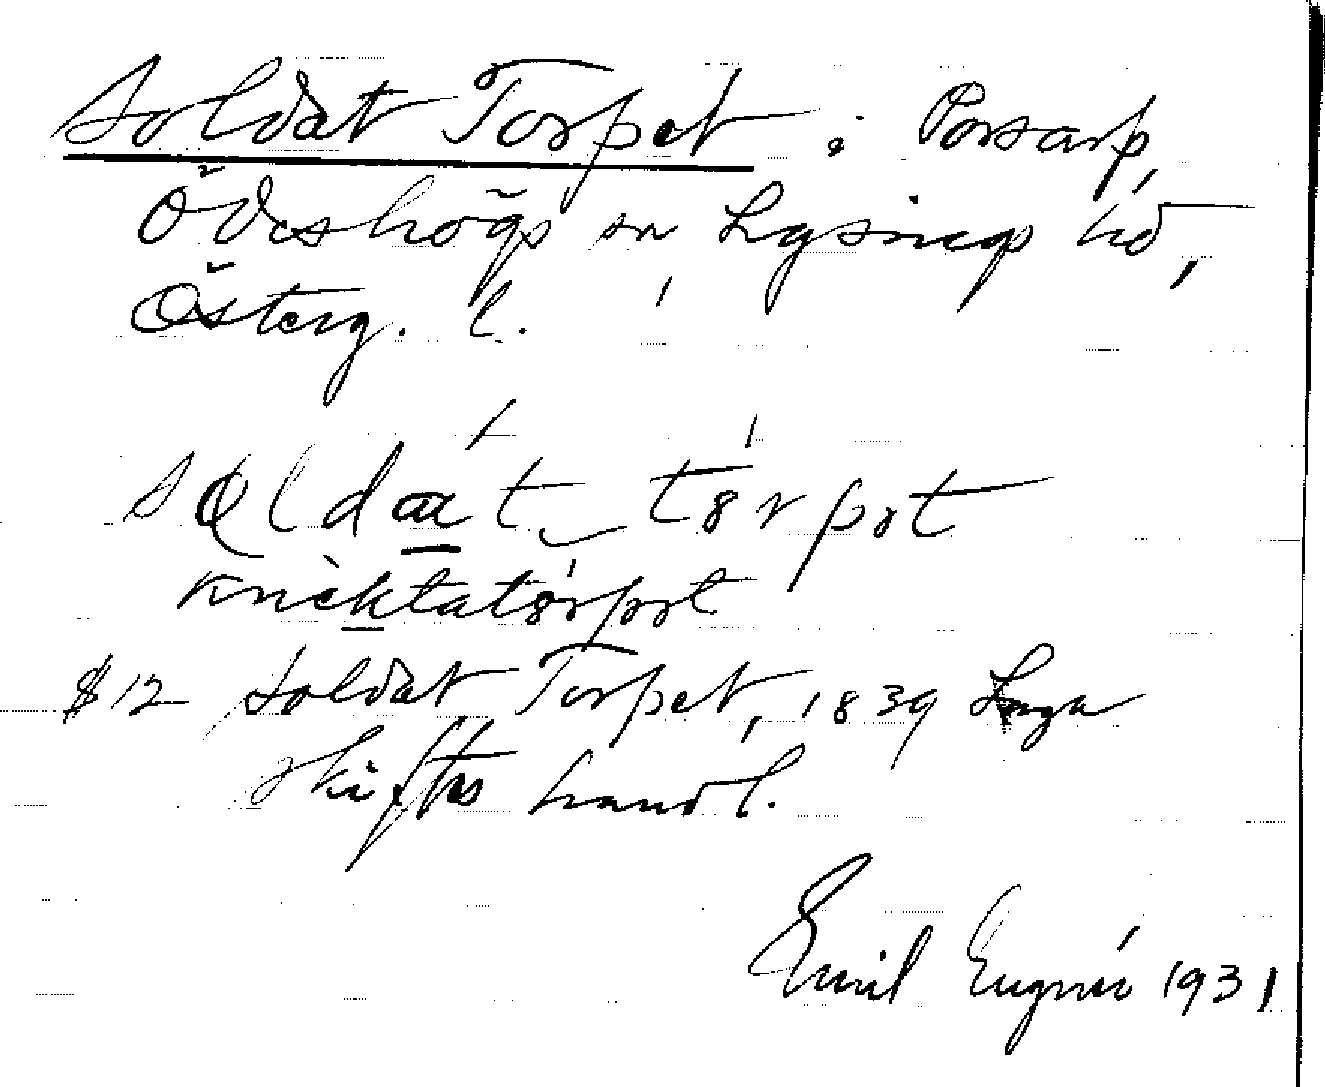 Soldat Torpet : Porsarp,
Ödeshögs sn Lysings hd,
Österg. l.
sǫldát‿tórpət
knìktatórpət
$12 Soldat Torpet, 1839 Laga
skiftes handl.
Emil Eugné 1931